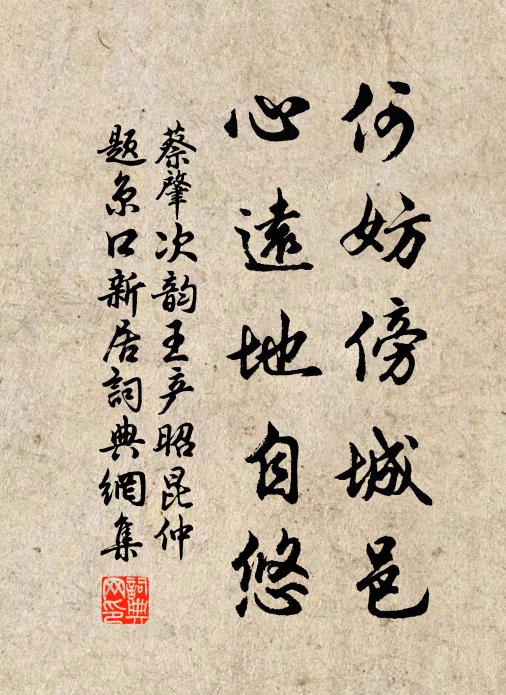 何妨傍城邑
心遠地自悠
蔡肇次韵王彦昭昆仲
题京口新居詞典網集
詞典網印